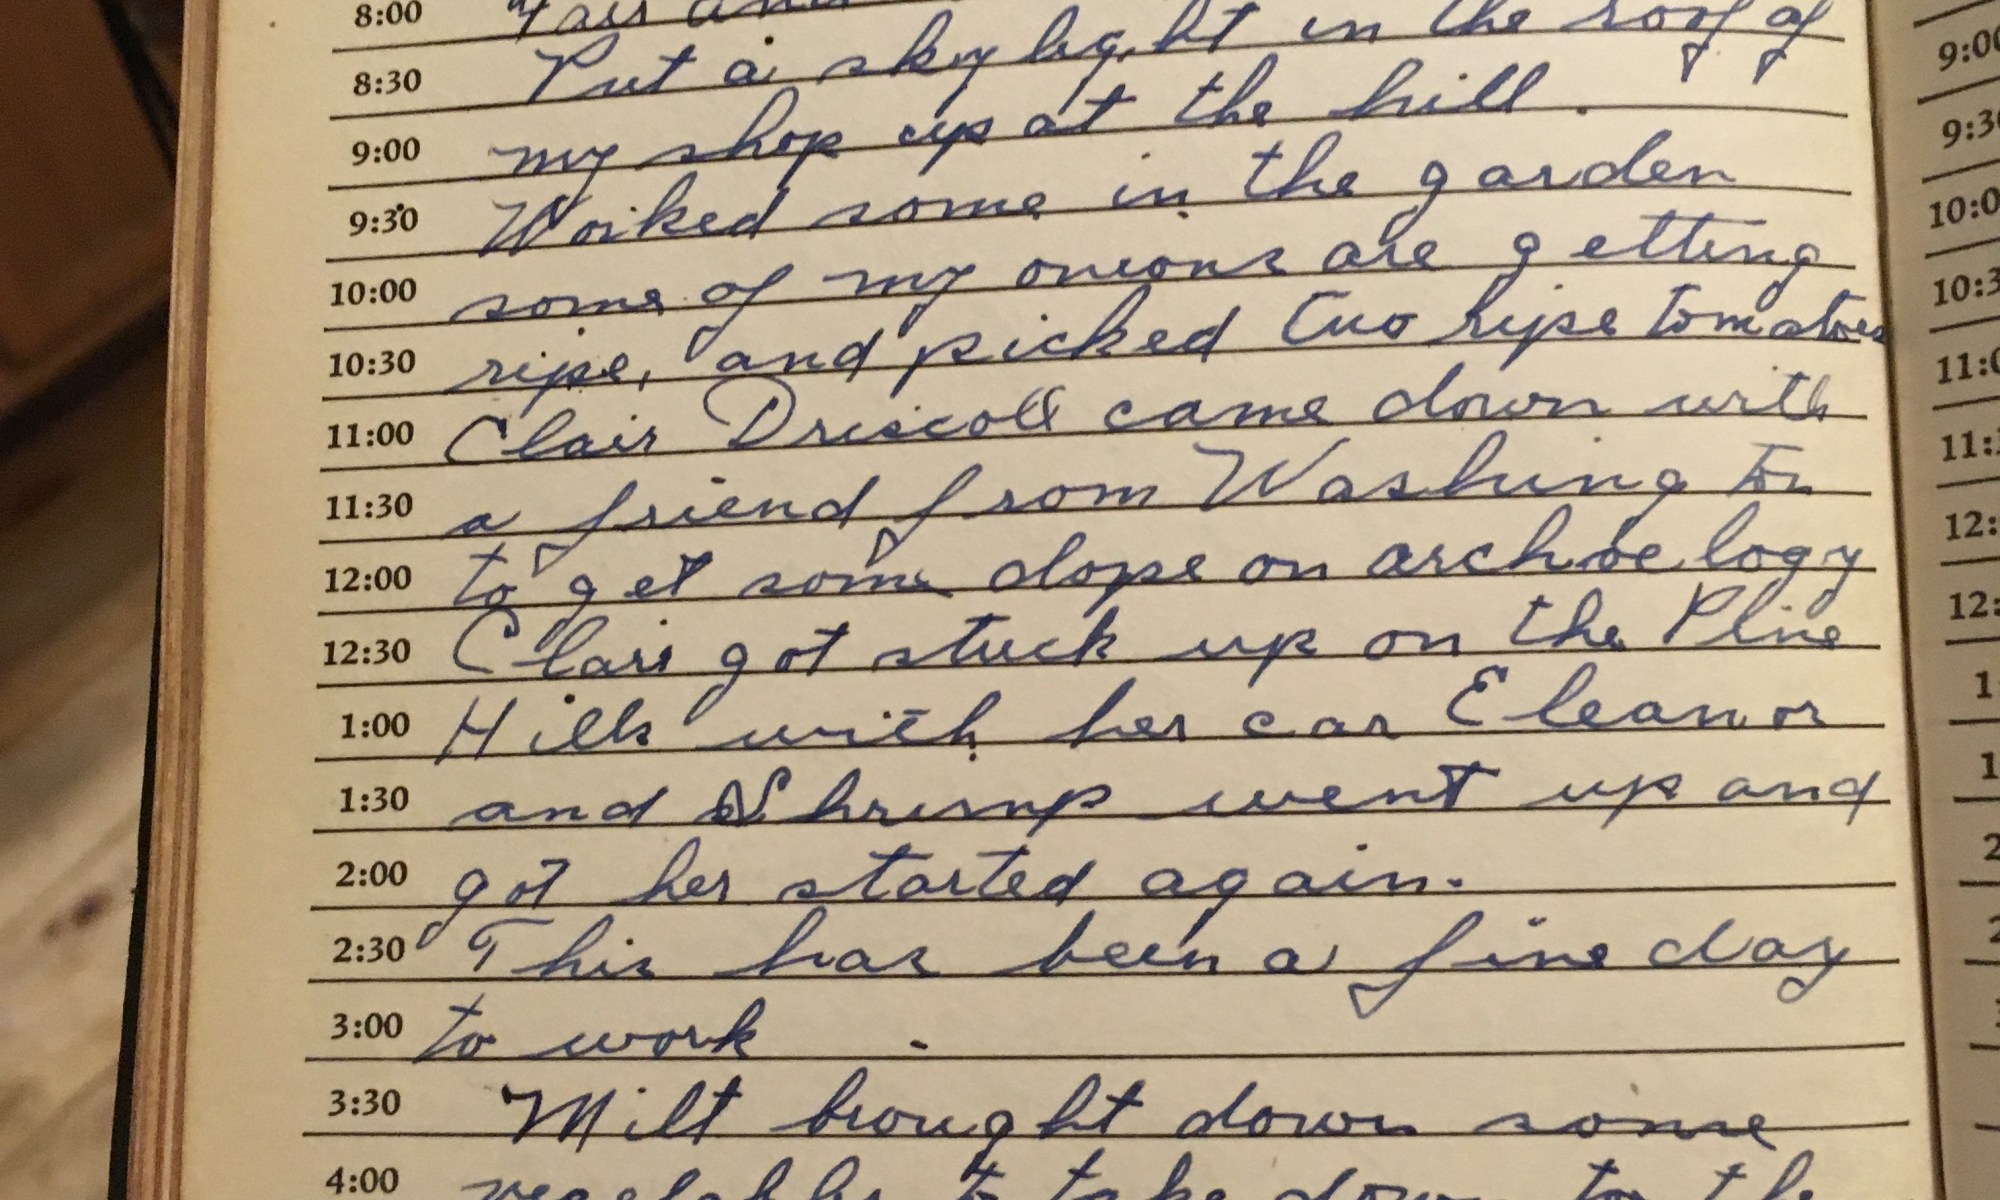 8:00 Fair and
8:30 Put a skylight in the roof of
9:00 my shop up at the hill.
9:30 Worked some in the garden
10:00 some of my onions are getting
10:30 ripe, and picked two ripe tomatoes
11:00 Clair Driscoll came down with
11:30 a friend from Washington
12:00 to get some dope on archoelogy
12:30 Clair got stuck up on the Pline
1:00 Hills with her car Eleanor
1:30 and Shrimp went up and
2:00 got her started again.
2:30 This has been a fine day
3:00 to work.
3:30 Milt brought down some
4:00 vegetables to take down to the
9:00
9:30
10:0
10:3
11:0
11:
12:
12:
1
1
2
2